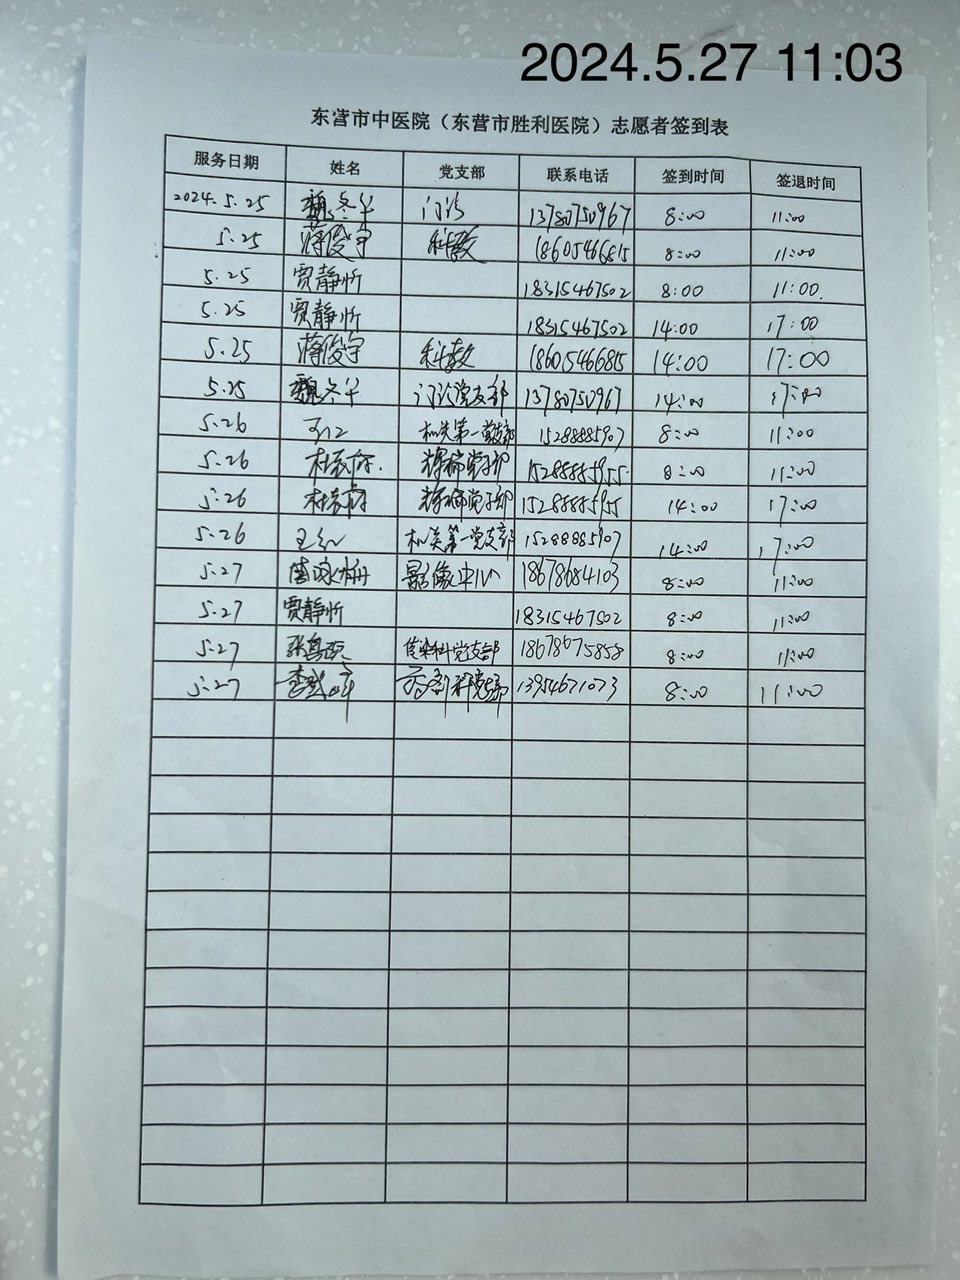 2024.5.27 11:03
东营市中医院（东营市胜利医院）志愿者签到表
服务日期 姓名 党支部 联系电话 签到时间 签退时间
2024.5.25 魏冬华 门诊 13780750967 8:00 11:00
5.25 蒋俊宇 科教 18605466815 8:00 11:00
5.25 贾静忻 18315467502 8:00 11:00.
5.25 贾静忻 18315467502 14:00 17:00
5.25 蒋俊宇 科教 18605466815 14:00 17:00
5.25 魏冬华 门诊党支部 13780750967 14:00 17:00
5.26 机关第一党支部 15288885907 8:00 11:00
5.26 党支部 15288885955 8:00 11:00
5.26 党支部 15288885955 14:00 17:00
5.26 机关第一党支部 15288885907 14:00 17:00
5.27 影像中心 18678684103 8:00 11:00
5.27 贾静忻 18315467502 8:00 11:00
5.27 党支部 18678675858 8:00 11:00
5.27 李 党支部 13954671073 8:00 11:00